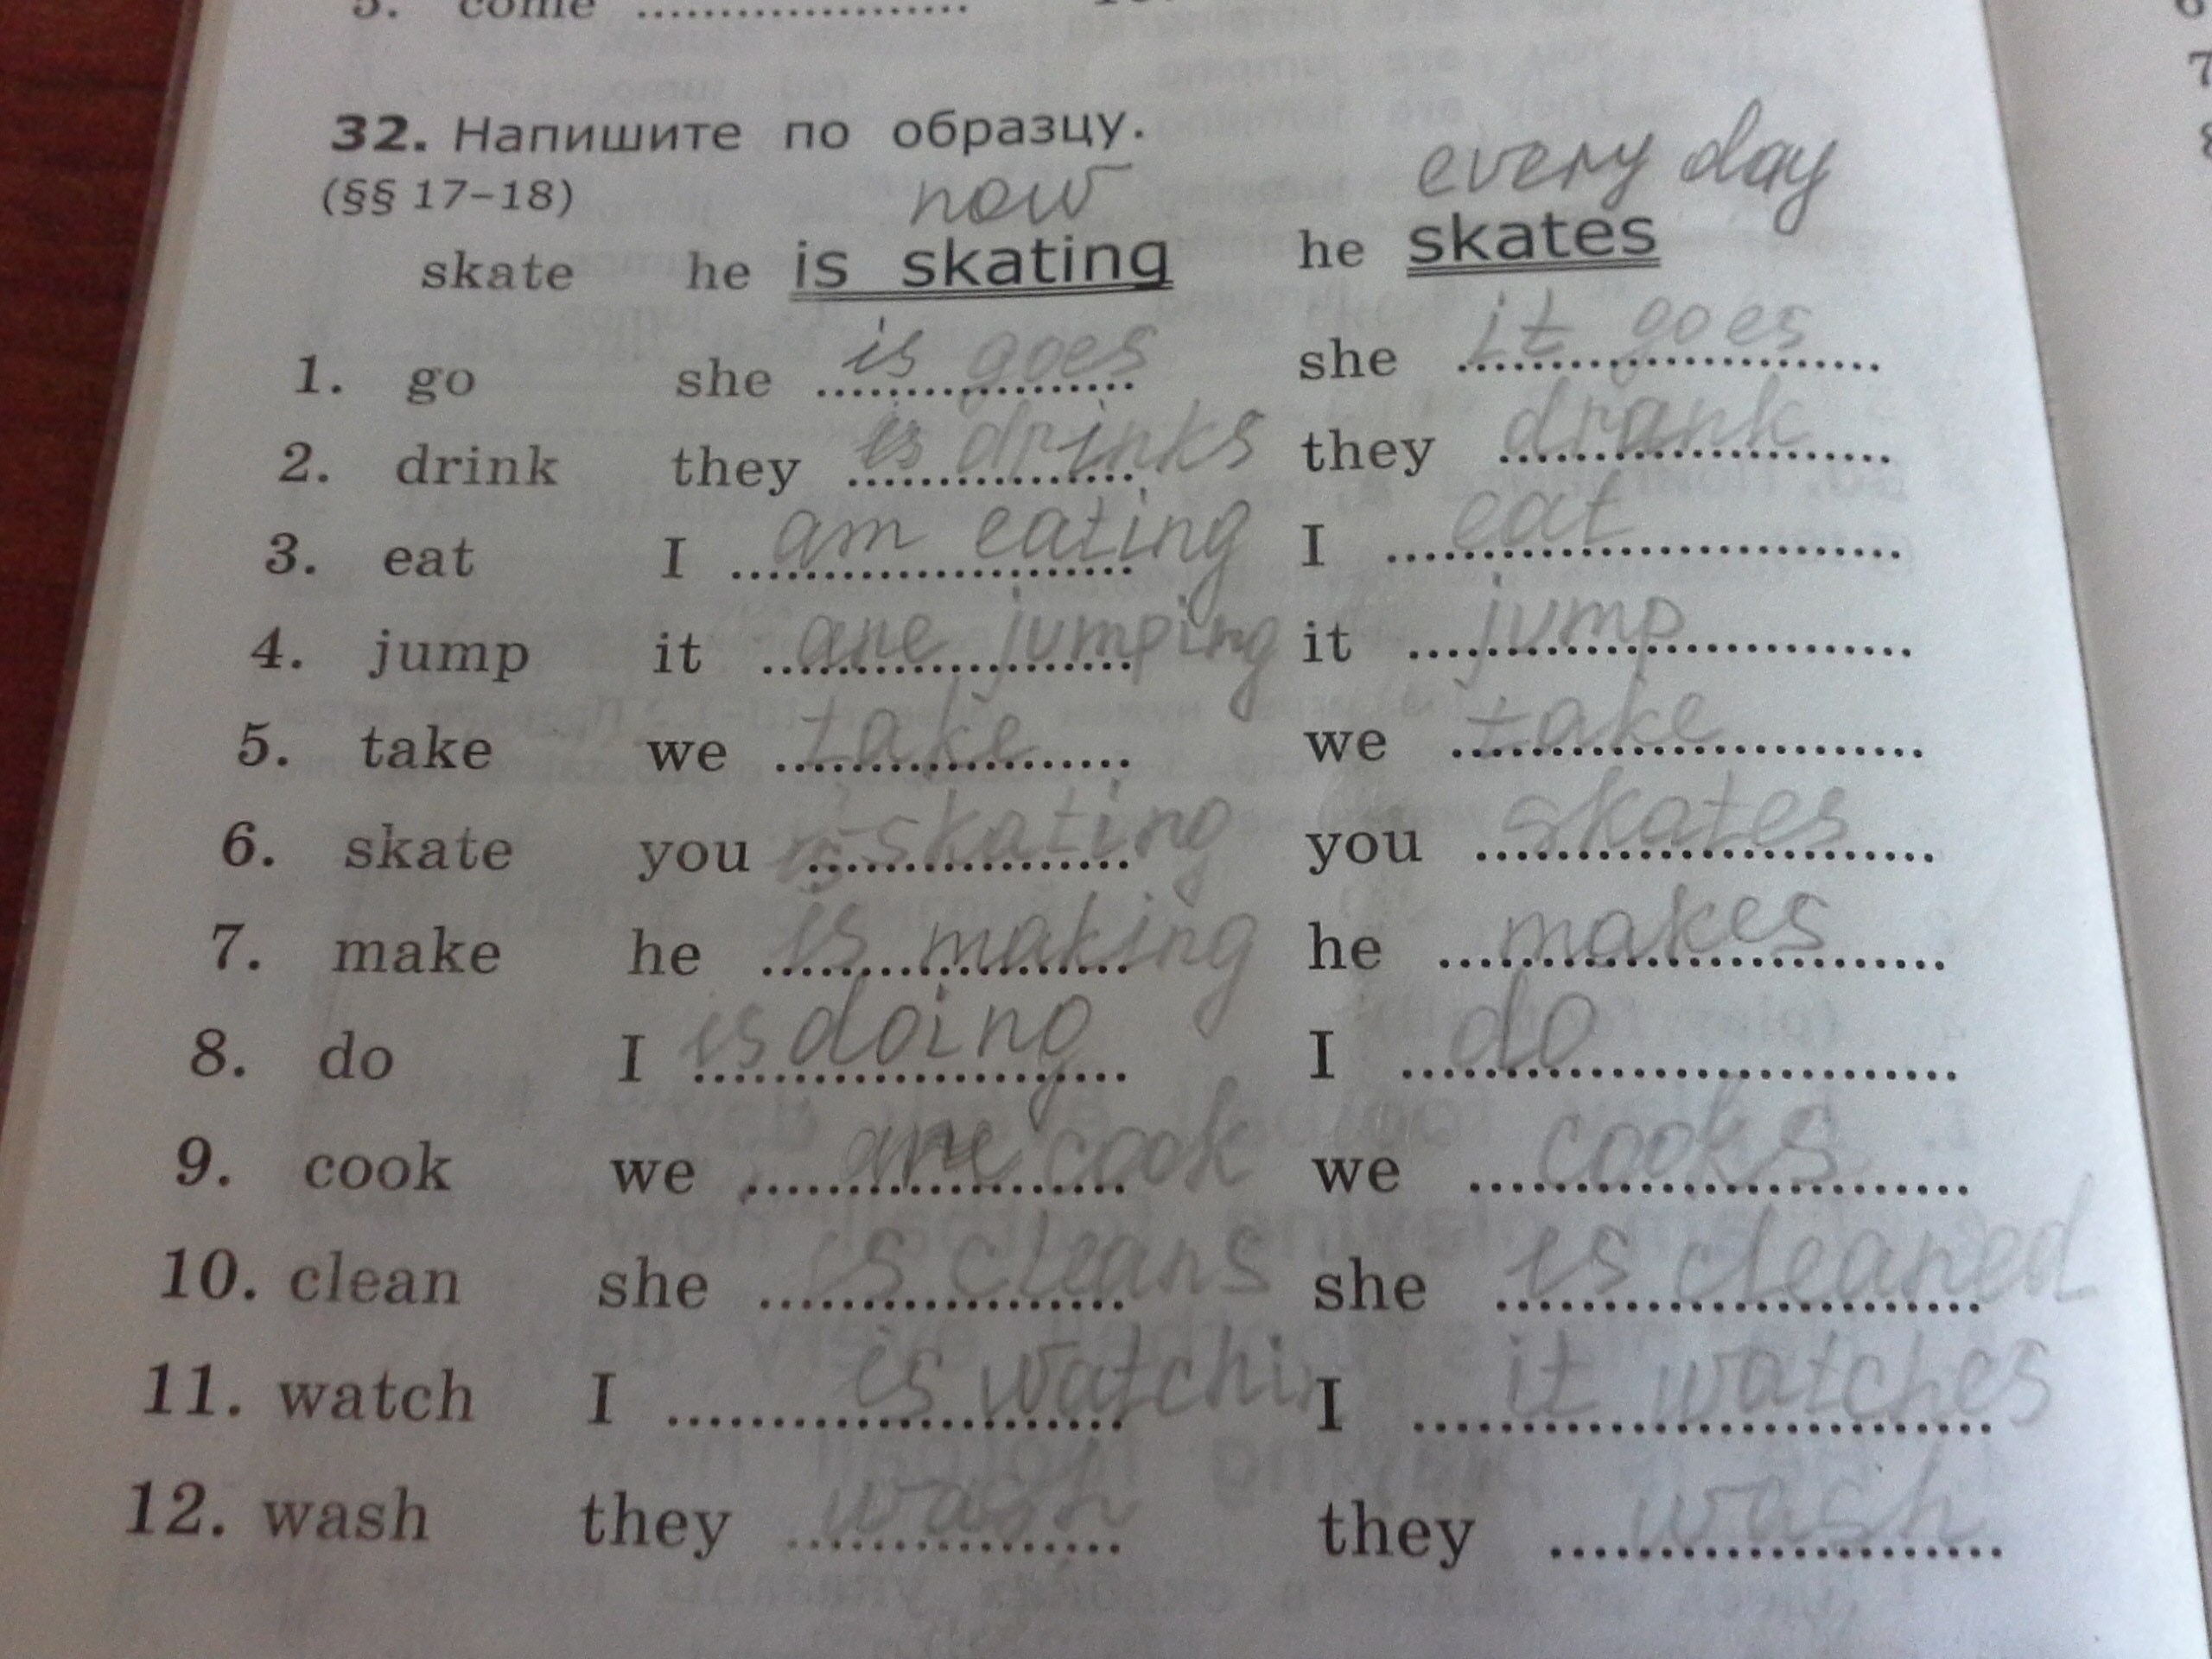 5. come ....................
32. Напишите по образцу.
(§§ 17–18) now every day
skate he is skating he skates
1. go she is goes she it goes
2. drink they is drinks they drank
3. eat I am eating I eat
4. jump it are jumping it jump
5. take we take we take
6. skate you is skating you skates
7. make he is making he makes
8. do I is doing I do
9. cook we are cook we cooks
10. clean she is cleans she is cleaned
11. watch I is watchin I it watches
12. wash they wash they wash